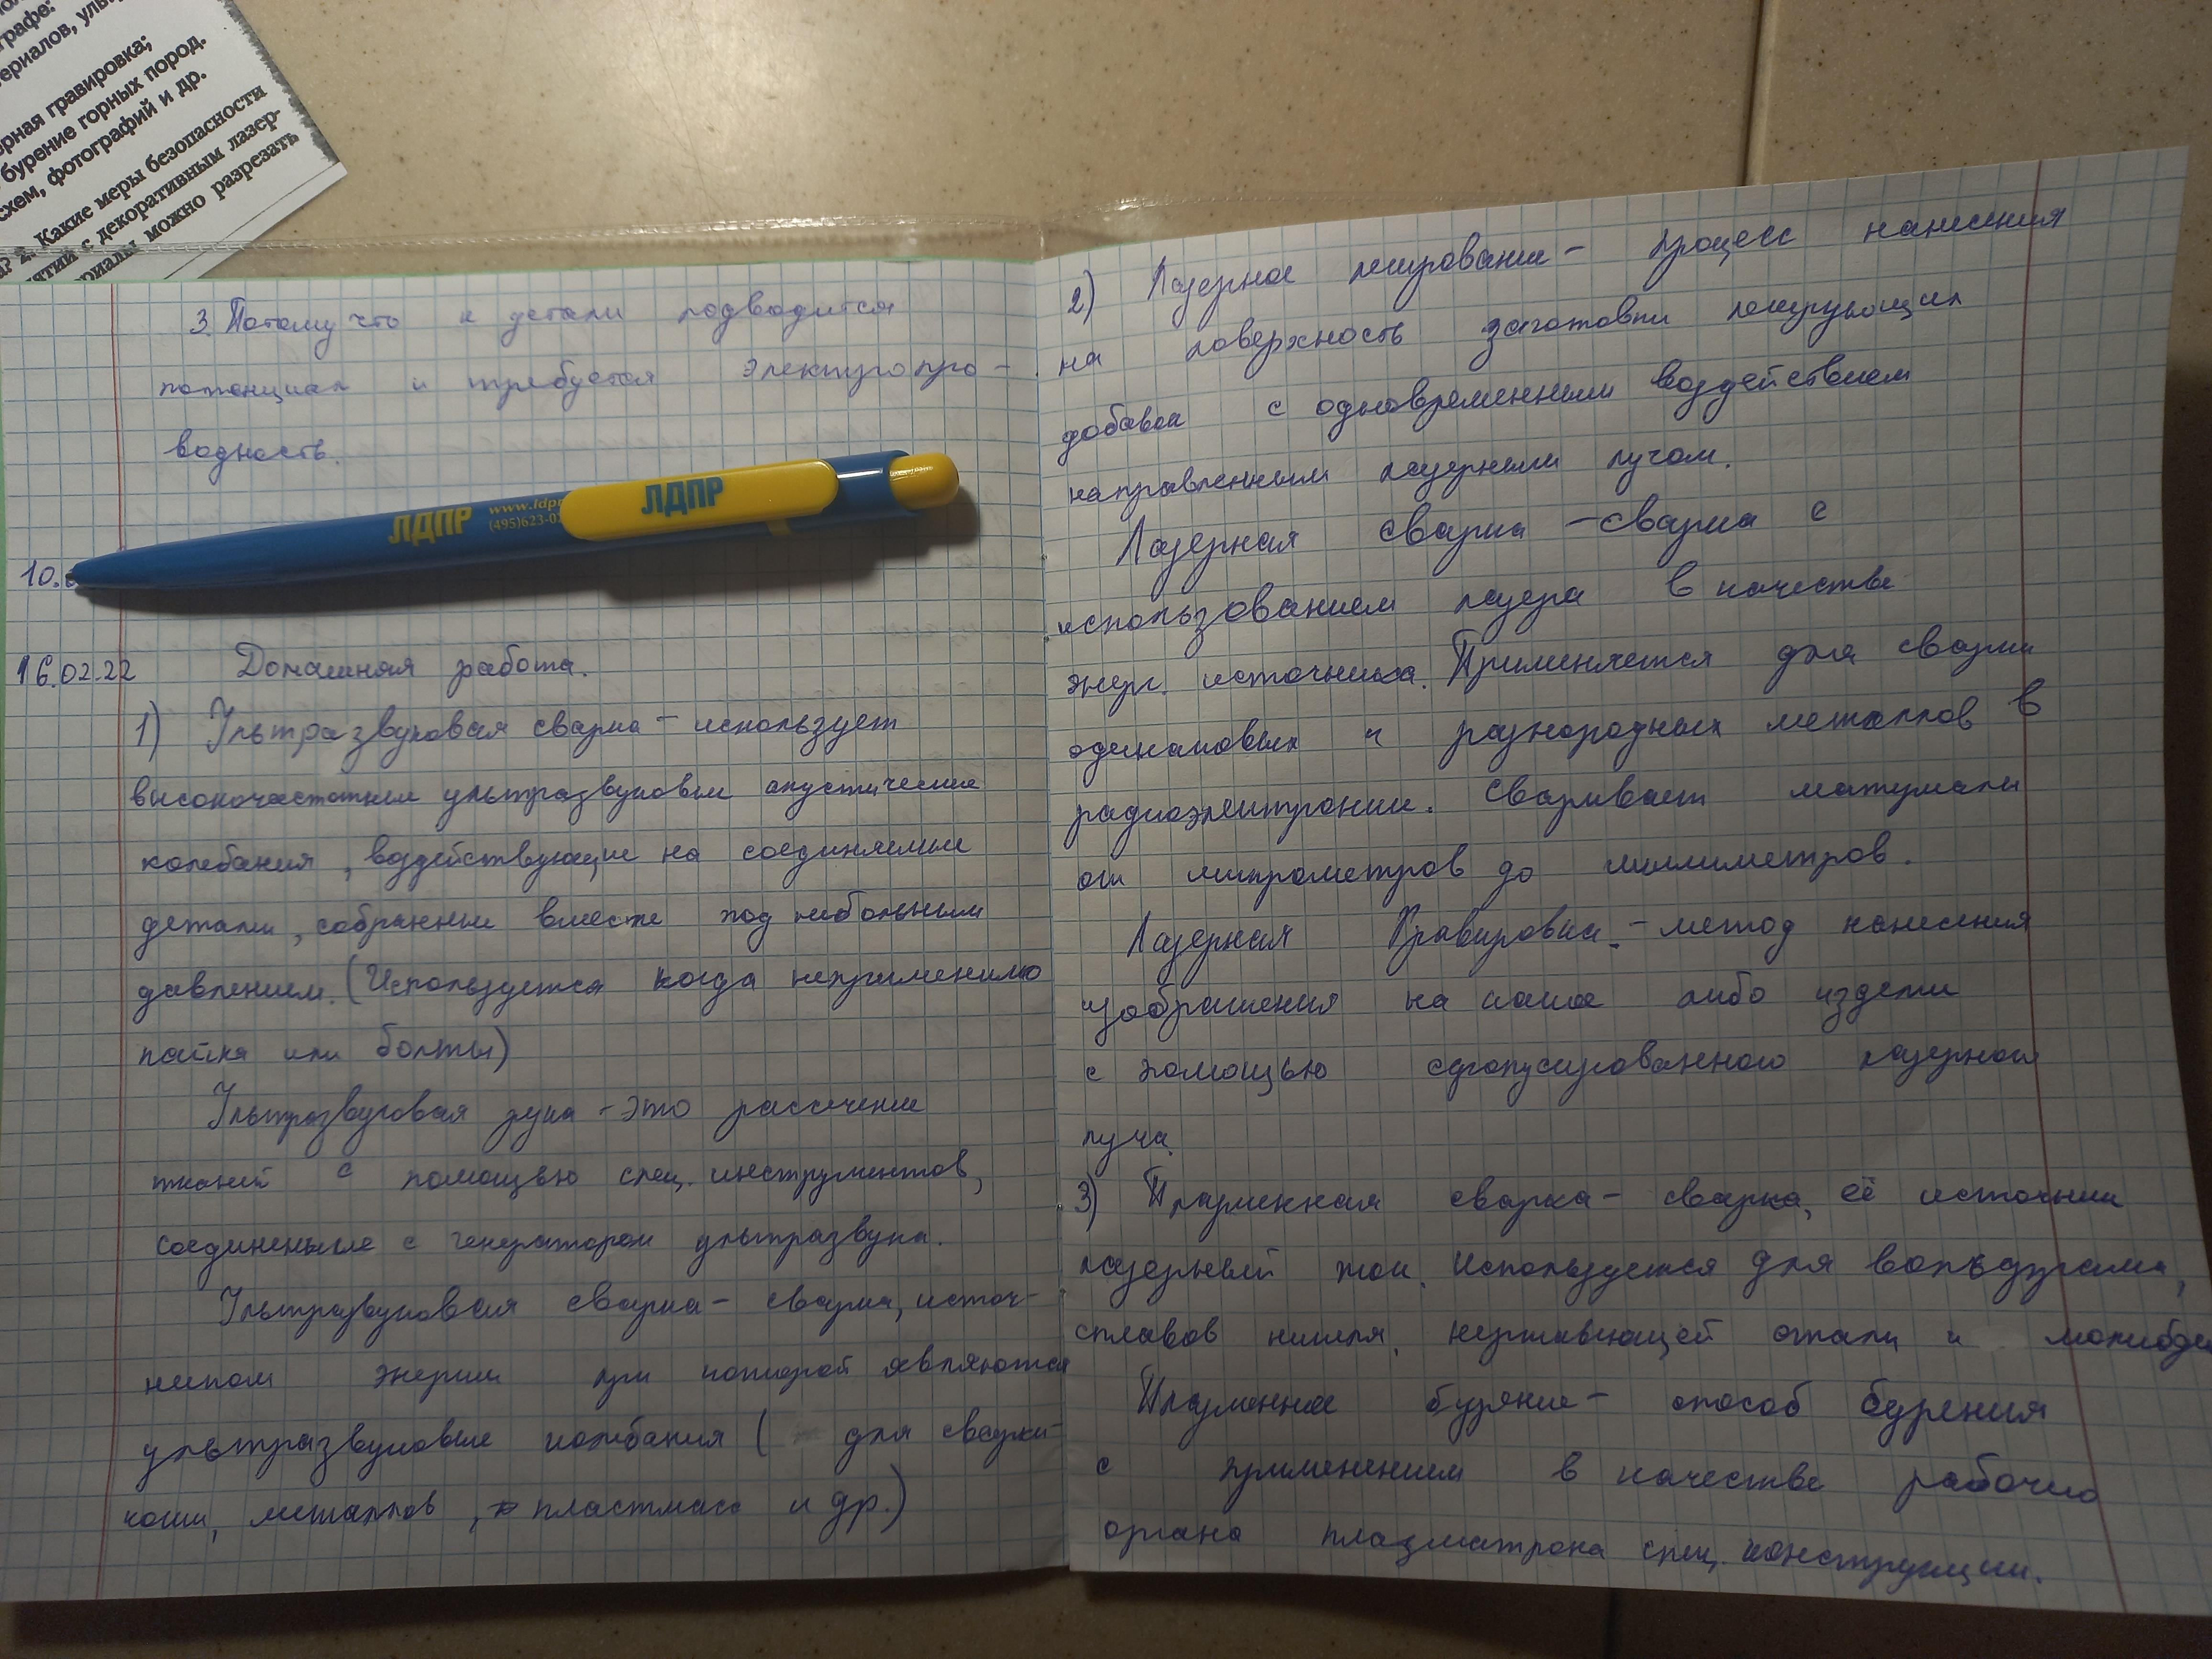 графе:
териалов, уль
рная гравировка;
бурение горных пород.
схем, фотографий и др.
2. Какие меры безопасности
ятий с декоративным лазер-
риалы можно разрезать
3. Потому что к детали подводится
потенциал и требуется электропро-
водность.
ЛДПР www.ldp
(495)623-02
ЛДПР
10.
16.02.22 Домашняя работа.
1) Ультразвуковая сварка - использует
высокочастотные ультразвуковые акустические
колебания, воздействующие на соединяемые
детали, собранные вместе под небольшим
давлением. (Используется когда неприменимо
пайка или болты)
Ультразвуковая резка - это рассечение
тканей с помощью спец. инструментов,
соединенные с генератором ультразвука.
Ультразвуковая сварка - сварка, источ-
ником энергии при которой являются
ультразвуковые колебания ( для сварки
кожи, металлов, пластмасс и др.)
2) Лазерное легирование - процесс нанесения
на поверхность заготовки легирующих
добавок с одновременным воздействием
направленным лазерным лучом.
Лазерная сварка - сварка с
использованием лазера в качестве
энерг. источника. Применяется для сварки
одинаковых и разнородных металлов в
радиоэлектронике. Сваривает материалы
от микрометров до миллиметров.
Лазерная Гравировка - метод нанесения
изображения на какое либо изделие
с помощью сфокусированного лазерного
луча.
3) Плазменная сварка - сварка, её источник
лазерный ток. Используется для вольфрама,
сплавов никеля, нержавеющей стали и молибде
Плазменное бурение - способ бурения
с применением в качестве рабочего
органа плазматрона спец. конструкции.